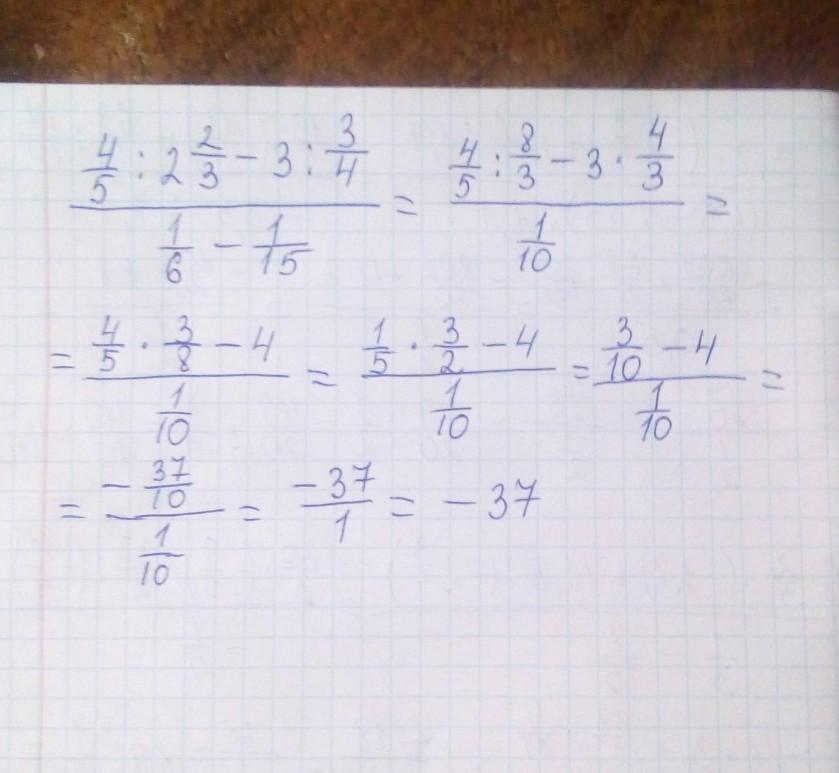 4/5 : 2 2/3 − 3 : 3/4 / 1/6 − 1/15 = 4/5 : 8/3 − 3 · 4/3 / 1/10 =
= 4/5 · 3/8 − 4 / 1/10 = 1/5 · 3/2 − 4 / 1/10 = 3/10 − 4 / 1/10 =
= − 37/10 / 1/10 = −37/1 = −37